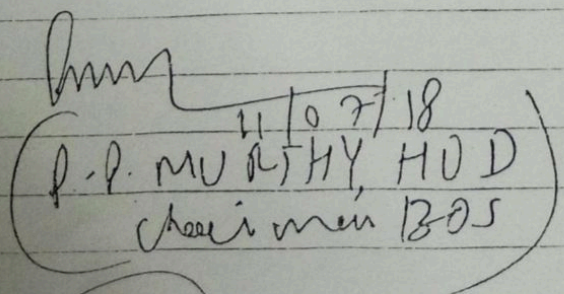 11/07/18
(P.P. MURTHY, HOD
Chairman BOS)